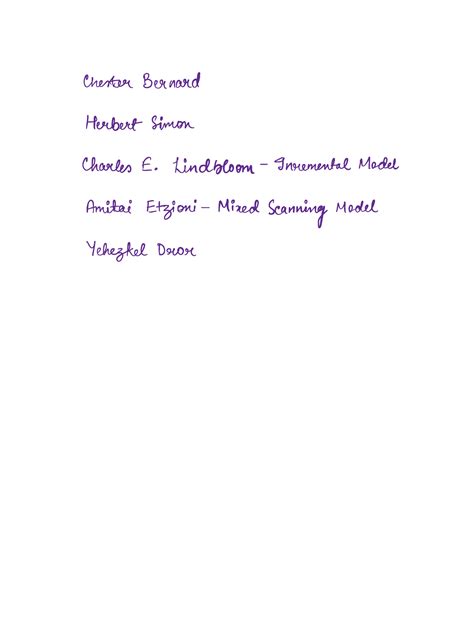 Chester Bernard
Herbert Simon
Charles E. Lindbloom - Incremental Model
Amitai Etzioni - Mixed Scanning Model
Yehezkel Dror